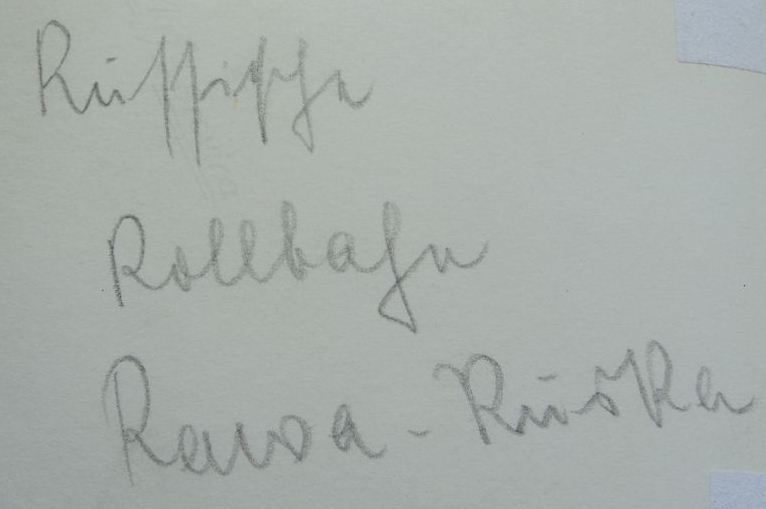 Russische
Rollbahn
Rawa - Ruska